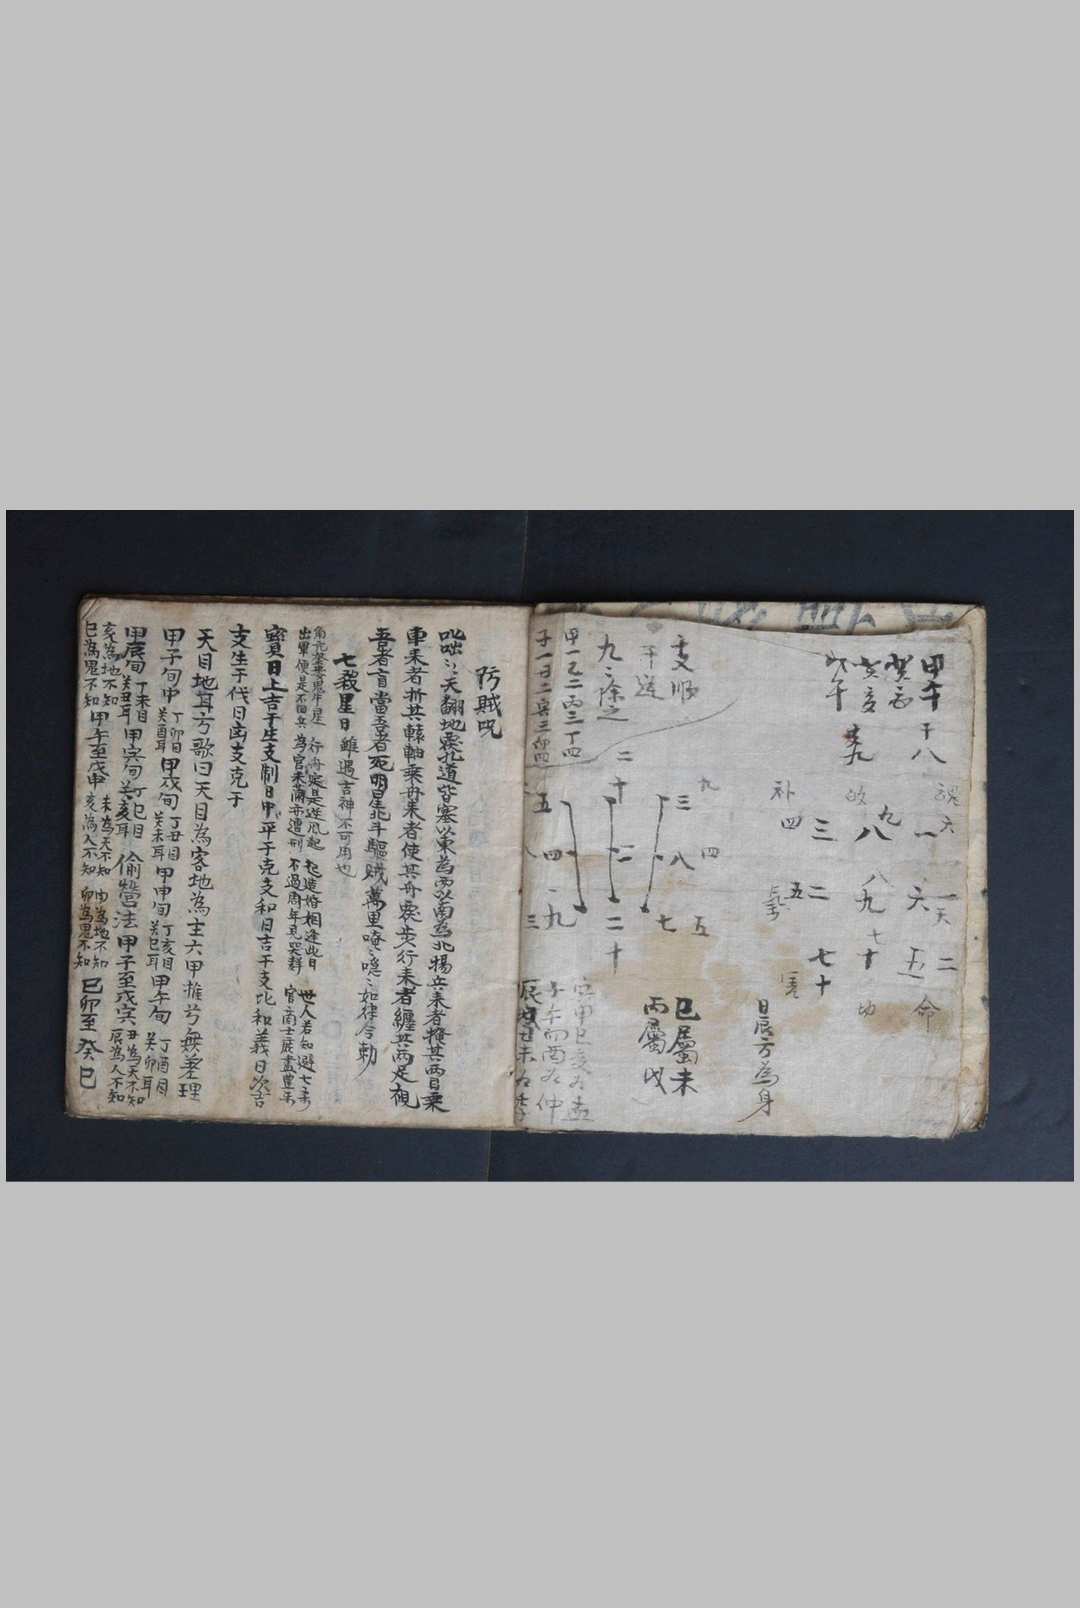 甲午 十八
癸亥
九
魂 六 一 六 五 命
一 天 二
故 九 八 八 九 七 十 功
补 四 三 五 二 七 十
日辰方為身
支順
干逆
九之除之
甲一乙二丙三丁四
子一丑二寅三卯四
二十
五 四 九 三
二 二十
三 八 七
九 四 五
巳屬未
丙屬戌
寅申巳亥為孟
子午卯酉為仲
辰戌丑未為季
防賊咒
咄咄天翻地覆九道皆塞以東為西以南為北揚兵來者掩其兩目乗
車來者折其轅軸乗舟來者使其舟覆步行來者纏其两足視
吾者盲當吾者死明星北斗驅賊萬里唵唵如律令勅
七殺星日 雖遇吉神不可用也
角亢奎婁鬼牛星 行舟定是遭風起 起造婚相逢此日 世人若知避七殺
出軍便是不回兵 為官未滿亦遭刑 不過周年見哭聲
寳日上吉于生支制日中平于克支和日吉干支比和義日次吉
支生于代日凶支克于
天目地耳方歌曰天目為客地為主六甲推兮無差理
甲子旬中 丁卯目 癸酉耳 甲戌旬 丁丑目 癸未耳 甲申旬 丁亥目 癸巳耳 甲午旬 丁酉目 癸卯耳
甲辰旬 丁未目 癸丑耳 甲寅旬 丁巳目 癸亥耳 偷營法 甲子至戊寅 丑為天不知 辰為人不知
亥為地不知 巳為鬼不知 甲午至戊申 未為天不知 亥為人不知 由為地不知 卯為鬼不知 巳卯至癸巳